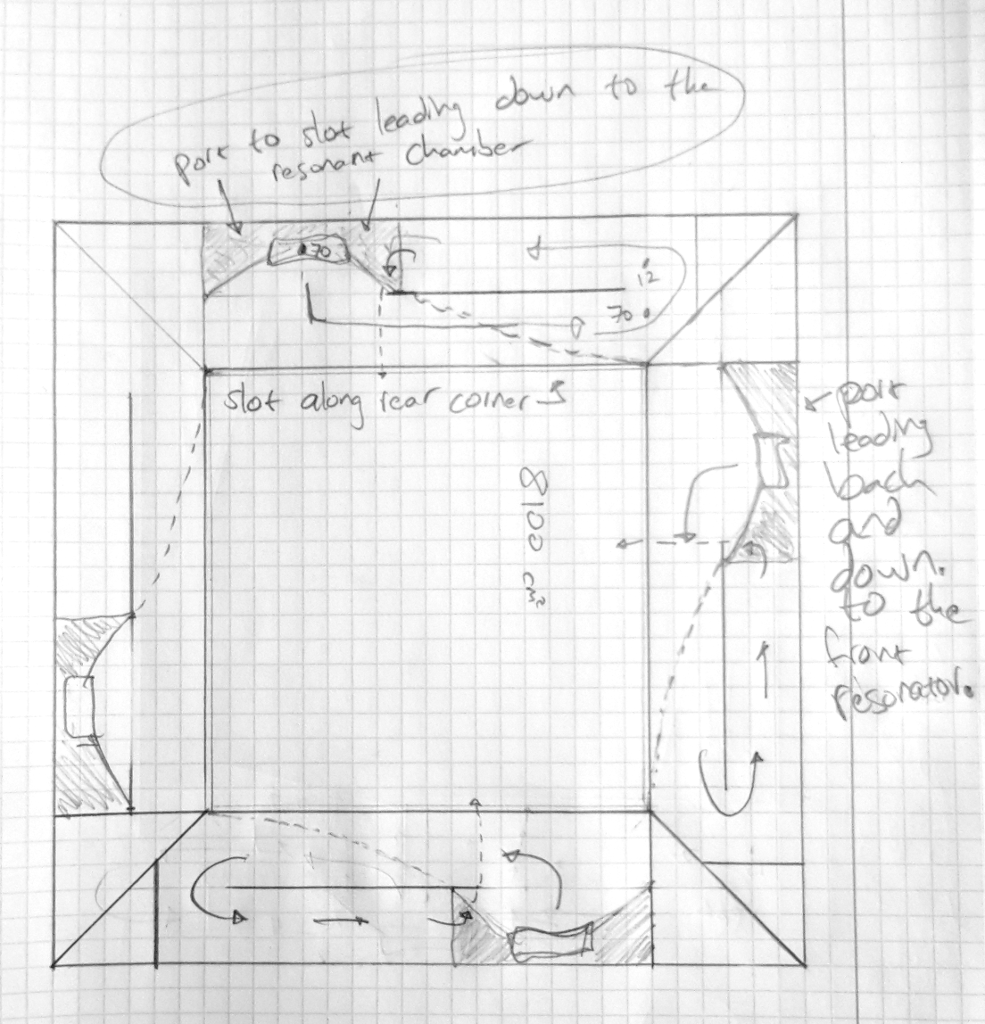 port to slot leading down to the
resonant chamber
70
12
70
slot along rear corner
8100 cm²
port
leading
back
and
down.
to the
front
resonator.